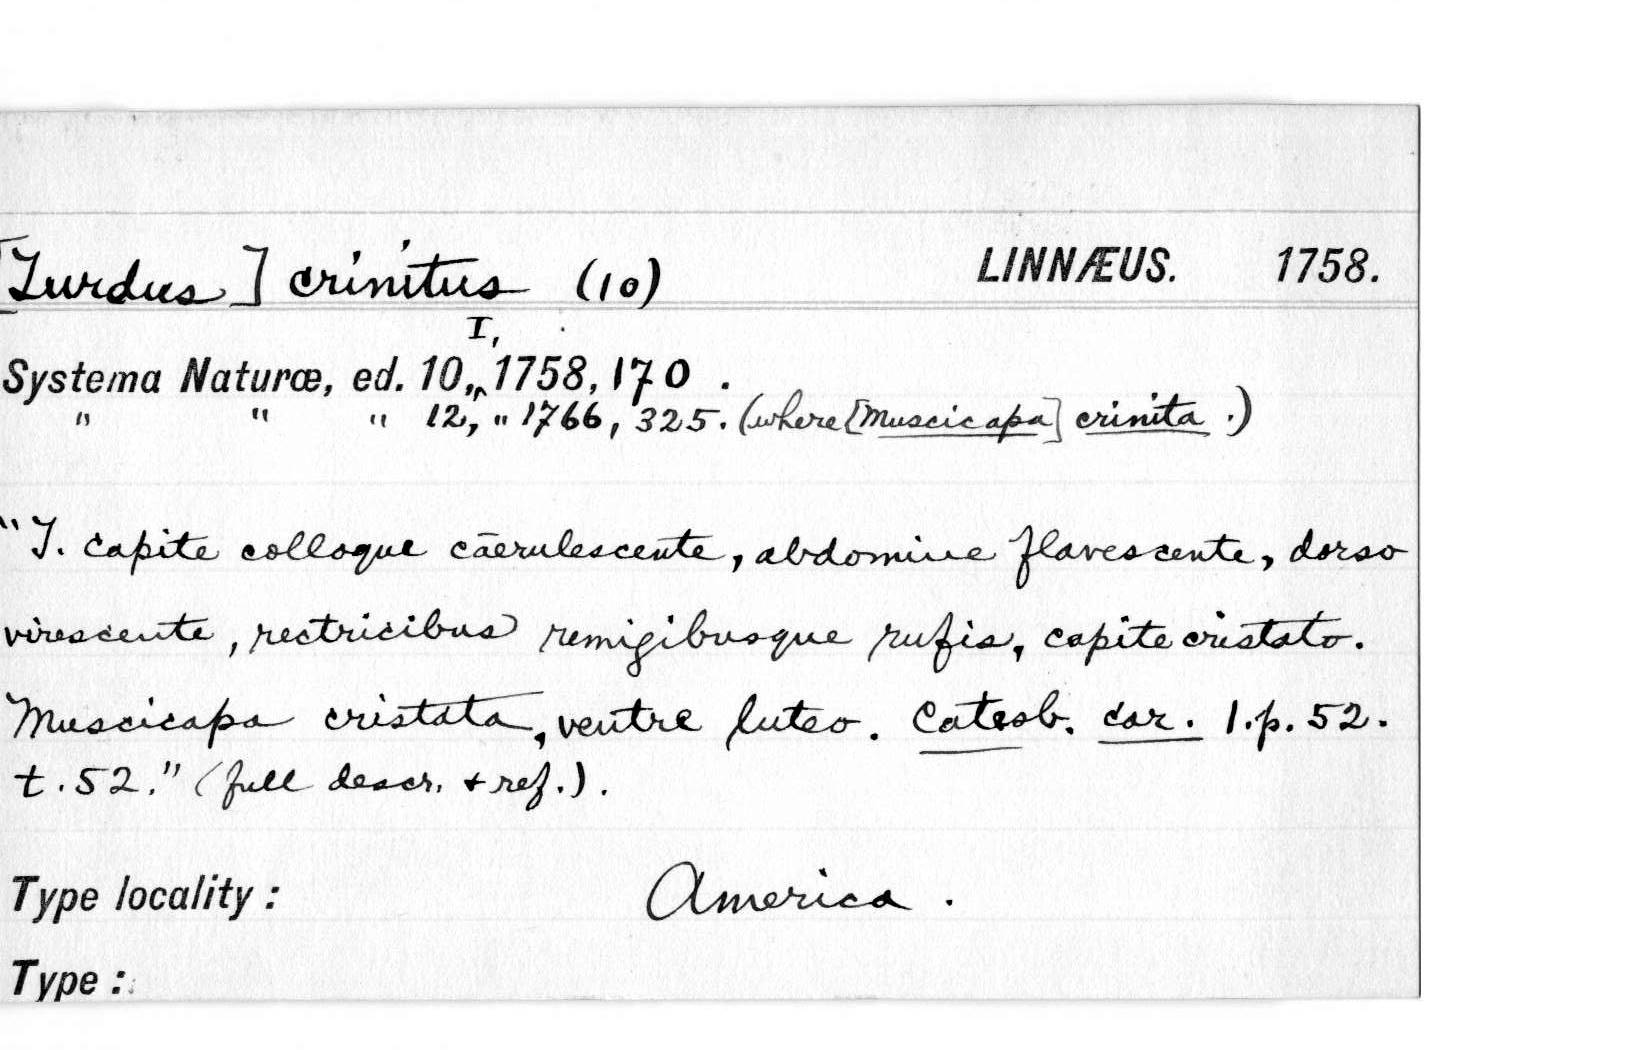 [Turdus] crinitus (10) LINNÆUS. 1758.
I,
Systema Naturæ, ed. 10,, 1758, 170.
" " " 12, " 1766, 325. (where [Muscicapa] crinita.)
"T. capite colloque cærulescente, abdomine flavescente, dorso
virescente, rectricibus remigibusque rufis, capite cristato.
Muscicapa cristata, ventre luteo. Catesb. car. 1. p. 52.
t. 52." (full descr. & ref.).
Type locality: America.
Type: